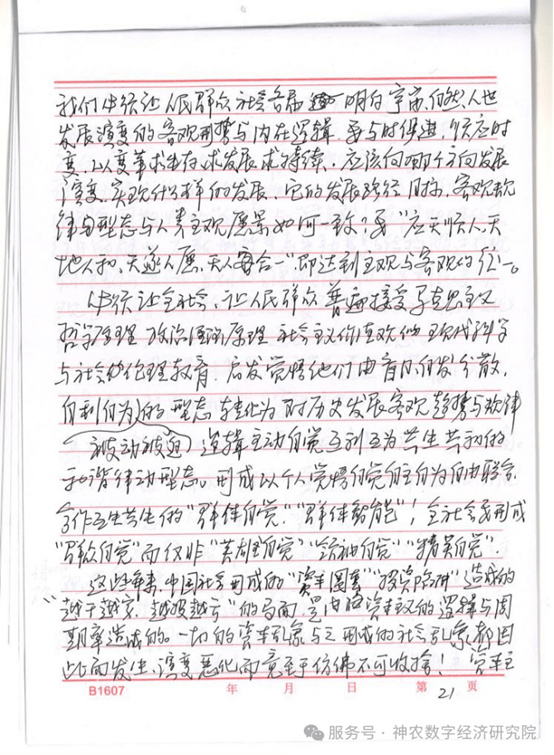 我们必须让人民群众社会各届 明白宇宙、自然、人世
发展演变的客观形势与内在逻辑,要与时俱进,顺应时
变,以变革求生存求发展求持续,应该向哪个方向发展
演变,实现什么样的发展,它的发展路径目标,客观规
律与型态与人类主观愿景如何一致?要“应天顺人,天
地人和,天遂人愿,天人合一”,即达到主观与客观的统一。
必须让全社会、让人民群众普遍接受马克思主义
哲学原理 政治经济原理 社会主义价值观 现代科学
与社会 伦理教育,启发觉悟他们由盲目、自发、分散,
自利自为的型态转化为对历史发展客观趋势与规律
被动被迫,逻辑主动自觉互利互为共生共 的
和谐律动型态。形成以个人觉悟自觉自主自为自由联合
合作互生共生的“群体自觉”“群体智能”!全社会要形成
“群众自觉”而仅非“英雄自觉”“领袖自觉”“精英自觉”。
这些年来,中国社会形成的“资本围 ”“投资陷阱”造成的
“越干越穷、越投越亏”的局面,是由 资本主义的逻辑与周
期率造成的。一切的资本乱象与之形成的社会乱象都因
此而发生、演变恶化而竟至于仿佛不可收拾! 资本主
B1607 年 月 日 第 21 页
服务号 · 神农数字经济研究院